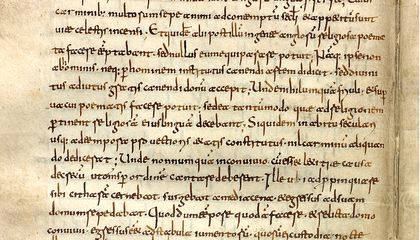 carminib; multorum saepe animi ad contemptū saeculi, et appetitum sunt
vitae caelestis accensi. Et quidē alii post illum in gente anglorū religiosa poema
ta facere temtabant. sed nullus eum aequiperare potuit. Namq; ipse non
ab hominib; neq; per hominem institutus canendi artem didicit. sed divini
tus adiutus gratis canendi donū accepit; Unde nihil umquā frivoli, et super
vacui poematis facere potuit. sed ea tantummodo quae ad religionem
pertinent religiosam eius linguam decebant; Siquidem in habitu saeculari
usq; ad tempora provectioris aetatis constitutus. nil carminum aliquan
do didicerat; Unde nonnumquā in convivio cum esset laetitiae causa
decretū ut omnes per ordinē cantare deberent. Ille ubi adpropinquare
sibi citharam cernebat. surgebat a media caena. et egressus ad suam
domum repedabat; Quod dum tempore quodā faceret, et relicta domo
convivii, egressus esset ad stabula iumentorū quorū ei custodia nocte